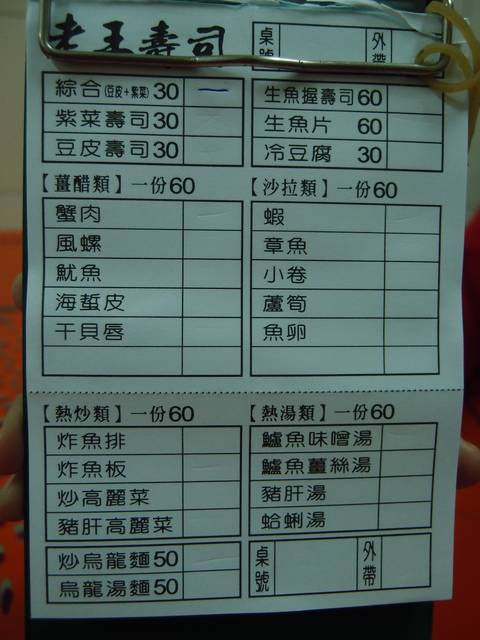 老王壽司
桌號 外帶
綜合(豆皮+紫菜)30 一
紫菜壽司30
豆皮壽司30
生魚握壽司60
生魚片 60
冷豆腐 30
【薑醋類】一份60
蟹肉
風螺
魷魚
海蜇皮
干貝唇
【沙拉類】一份60
蝦
章魚
小卷
蘆筍
魚卵
【熱炒類】一份60
炸魚排
炸魚板
炒高麗菜
豬肝高麗菜
炒烏龍麵50
烏龍湯麵50
【熱湯類】一份60
鱸魚味噌湯
鱸魚薑絲湯
豬肝湯
蛤蜊湯
桌號 外帶